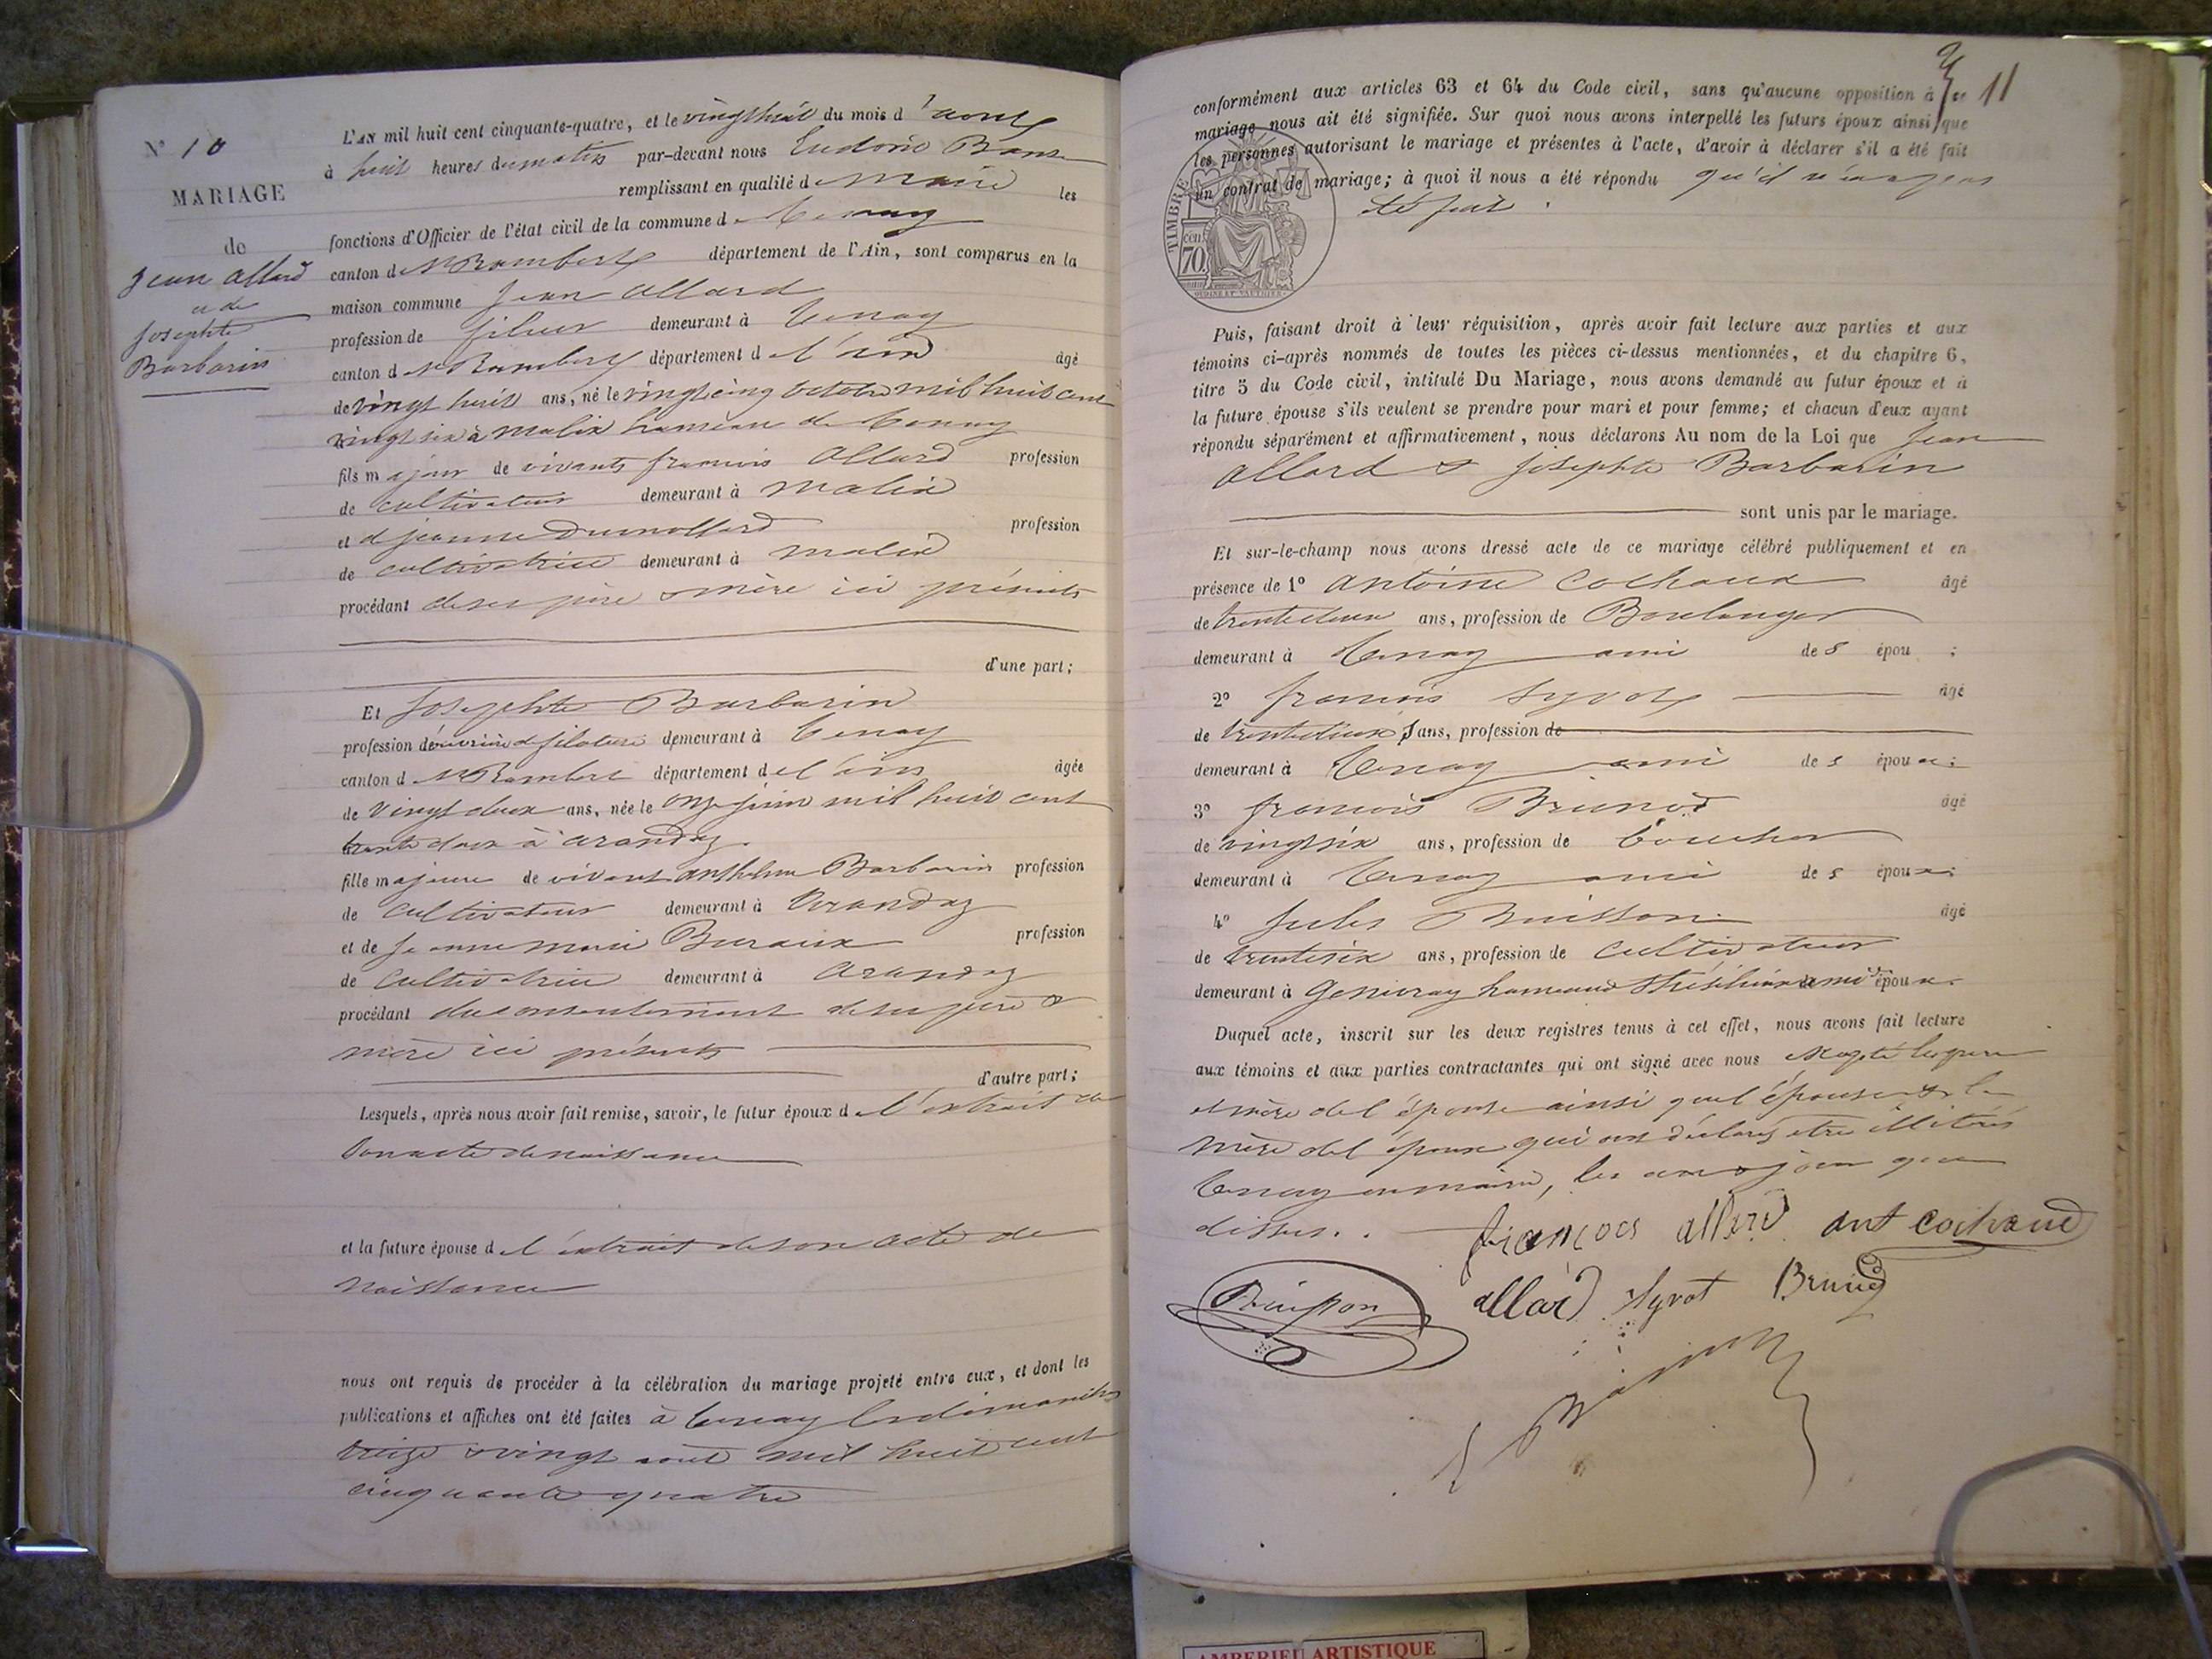 N° 10
MARIAGE
de
Jean Allard
et de
Josephte
Barbarin
L'AN mil huit cent cinquante-quatre, et le vingt huit du mois d'août
à huit heures du matin par-devant nous Ludovic
remplissant en qualité de Maire les
fonctions d'Officier de l'état civil de la commune de Tenay
canton de St Rambert département de l'Ain, sont comparus en la
maison commune Jean Allard
profession de fileur demeurant à Tenay
canton de St Rambert département de l'ain âgé
de vingt huit ans, né le vingt cinq octobre mil huit cent
vingt six à Malix hameau de Tenay
fils majeur de vivants francois Allard profession
de cultivateur demeurant à Malix
et d jeanne Dumollard profession
de cultivatrice demeurant à malix
procédant de ses père & mère ici présents
d'une part;
Et Josephte Barbarin
profession d'ouvrière de filature demeurant à Tenay
canton d St Rambert département de l'ain âgée
de vingt deux ans, née le onze juin mil huit cent
trente deux à arandaz.
fille majeure de vivant anthelme Barbarin profession
de cultivateur demeurant à Arandaz
et de Jeanne marie profession
de cultivatrice demeurant à arandaz
procédant du consentement de ses père &
mère ici présents
d'autre part;
Lesquels, après nous avoir fait remise, savoir, le futur époux de l'extrait de
son acte de naissance
et la future épouse de l'extrait de son acte de
naissance
nous ont requis de procéder à la célébration du mariage projeté entre eux, et dont les
publications et affiches ont été faites à Tenay les dimanches
treize & vingt août mil huit cent
cinquante quatre
11
conformément aux articles 63 et 64 du Code civil, sans qu'aucune opposition à ce
mariage nous ait été signifiée. Sur quoi nous avons interpellé les futurs époux ainsi que
les personnes autorisant le mariage et présentes à l'acte, d'avoir à déclarer s'il a été fait
un contrat de mariage; à quoi il nous a été répondu qu'il n'en a pas
été fait.
TIMBRE
cen.
70.
Puis, faisant droit à leur réquisition, après avoir fait lecture aux parties et aux
témoins ci-après nommés de toutes les pièces ci-dessus mentionnées, et du chapitre 6,
titre 5 du Code civil, intitulé Du Mariage, nous avons demandé au futur époux et à
la future épouse s'ils veulent se prendre pour mari et pour femme; et chacun d'eux ayant
répondu séparément et affirmativement, nous déclarons Au nom de la Loi que Jean
Allard & Josephte Barbarin
sont unis par le mariage.
Et sur-le-champ nous avons dressé acte de ce mariage célébré publiquement et en
présence de 1° Antoine Cochaud âgé
de trente deux ans, profession de Boulanger
demeurant à Tenay ami des épou ;
2° francois Syvot âgé
de trente deux ans, profession de
demeurant à Tenay ami des époux;
3° francois Brunod âgé
de vingt six ans, profession de boucher
demeurant à Tenay ami des époux;
4° Jules Buisson âgé
de trente six ans, profession de cultivateur
demeurant à hameau ami époux.
Duquel acte, inscrit sur les deux registres tenus à cet effet, nous avons fait lecture
aux témoins et aux parties contractantes qui ont signé avec nous excepté les père
et mère de l'épouse ainsi que l'épouse & la
mère de l'époux qui ont déclaré être illitérés
Tenay en mairie, les an & jour que
dessus.
françois allard ant cochaud
Buisson allard Syvot Brunod
AMBERIEU ARTISTIQUE